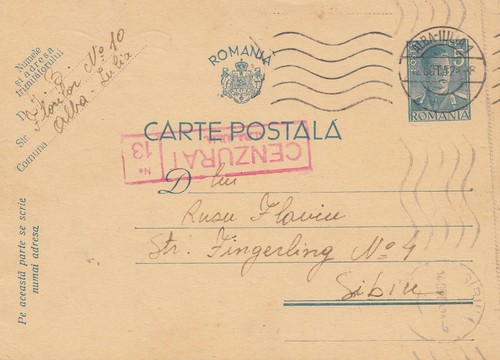 Numele
și adresa
trimițătorului
D
Str. Florilor Nº 10
Comuna Alba-Iulia
ROMANIA
CARTE POSTALĂ
5
ROMANIA
ALBA-IULIA
OCT. 942
CENZURAT
Nº 13
D lui
Rusu Flaviu
Str. Fingerling Nº 4
Sibiu
Pe această parte se scrie
numai adresa